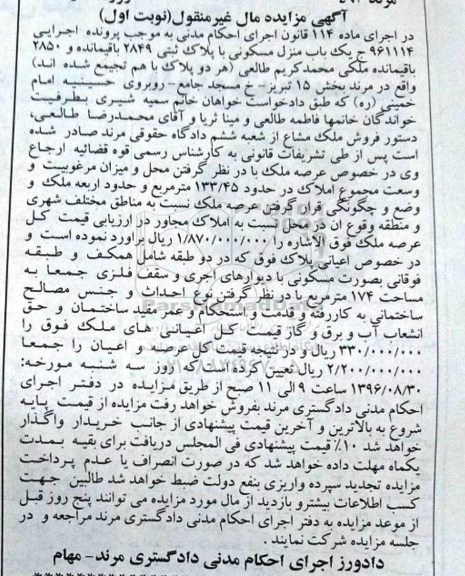 آگهی مزایده مال غیرمنقول(نوبت اول)
در اجرای ماده ۱۱۴ قانون اجرای احکام مدنی به موجب پرونده اجرایی
۹۶۱۱۱۴ ج یک باب منزل مسکونی با پلاک ثبتی ۲۸۴۹ باقیمانده و ۲۸۵۰
باقیمانده ملکی محمدکریم طالعی (هر دو پلاک با هم تجمیع شده اند)
واقع در مرند بخش ۱۵ تبریز- خ مسجد جامع- روبروی حسینیه امام
خمینی (ره) که طبق دادخواست خواهان خانم سمیه شیری بطرفیت
خواندگان خانمها فاطمه طالعی و مینا ثریا و آقای محمدرضا طالعی،
دستور فروش ملک مشاع از شعبه ششم دادگاه حقوقی مرند صادر شده
است پس از طی تشریفات قانونی به کارشناس رسمی قوه قضائیه ارجاع
وی در خصوص عرصه ملک با در نظر گرفتن محل و میزان مرغوبیت و
وسعت مجموع املاک در حدود ۱۳۳/۴۵ مترمربع و حدود اربعه ملک و
وضع و چگونگی قرار گرفتن عرصه ملک نسبت به مناطق مختلف شهری
و منطقه وقوع ان در محل نسبت به املاک مجاور در ارزیابی قیمت کل
عرصه ملک فوق الاشاره را ۱/۸۷۰/۰۰۰/۰۰۰ ریال برآورد نموده است و
در خصوص اعیانی پلاک فوق که در دو طبقه شامل همکف و طبقه
فوقانی بصورت مسکونی با دیوارهای آجری و سقف فلزی جمعا به
مساحت ۱۷۴ مترمربع با در نظر گرفتن نوع احداث و جنس مصالح
ساختمانی به کاررفته و قدمت و استحکام و عمر مفید ساختمان و حق
انشعاب آب و برق و گاز قیمت کل اعیانی های ملک فوق را
۳۳۰/۰۰۰/۰۰۰ ریال و در نتیجه قیمت کل عرصه و اعیان را جمعا
۲/۲۰۰/۰۰۰/۰۰۰ ریال تعیین گردیده که روز سه شنبه مورخه:
۱۳۹۶/۰۸/۳۰ ساعت ۹ الی ۱۱ صبح از طریق مزایده در دفتر اجرای
احکام مدنی دادگستری مرند بفروش خواهد رفت مزایده از قیمت پایه
شروع به بالاترین و آخرین قیمت پیشنهادی از جانب خریدار واگذار
خواهد شد ۱۰٪ قیمت پیشنهادی فی المجلس دریافت برای بقیه بمدت
یکماه مهلت داده خواهد شد که در صورت انصراف یا عدم پرداخت
مزایده تجدید سپرده واریزی بنفع دولت ضبط خواهد شد طالبین جهت
کسب اطلاعات بیشترو بازدید از مال مورد مزایده می توانند پنج روز قبل
از موعد مزایده به دفتر اجرای احکام مدنی دادگستری مرند مراجعه و در
جلسه مزایده شرکت نمایند .
دادورز اجرای احکام مدنی دادگستری مرند- مهام